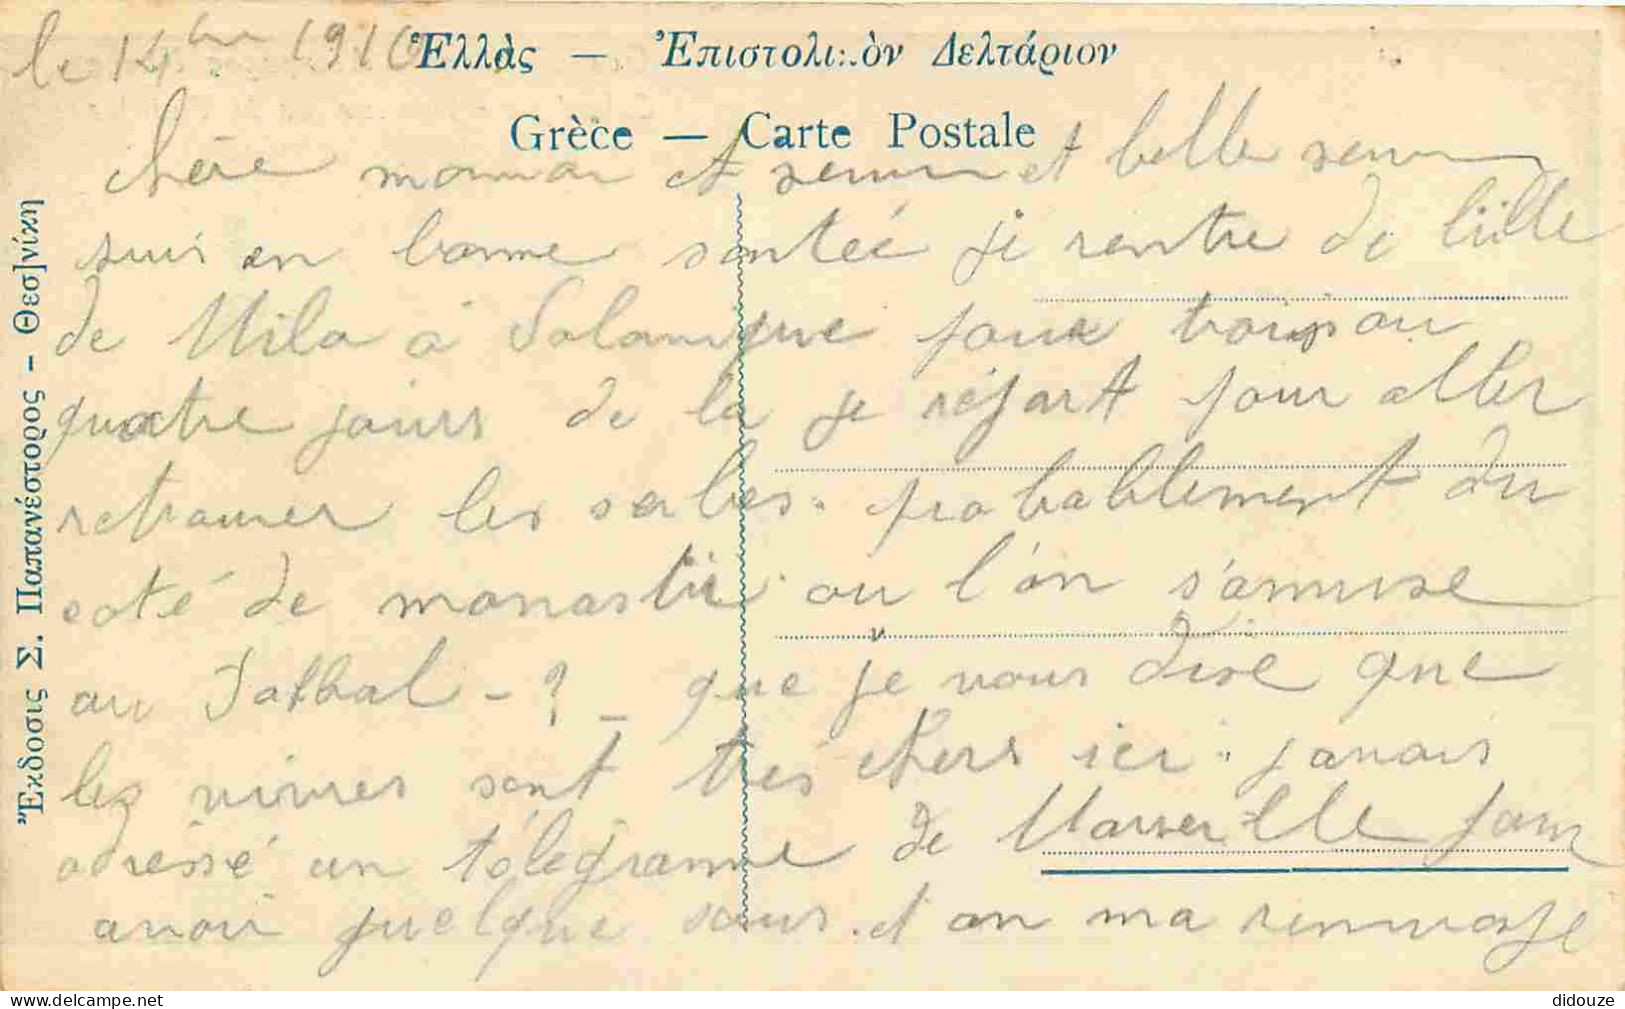 le 14 1916
Ἑλλὰς — Ἐπιστολι:.ὸν Δελτάριον
Grèce — Carte Postale
Ἔκδοσις Σ. Παπανέστορος - Θεσ]νίκη
chère maman et seur et belle seur
suis en bonne santée je rentre de
de Mila à Salonique pour trois ou
quatre jours de la je repart pour aller
retrouver les serbes. probablement du
coté de monastir ou l'on s'amuse
au Fotbal - ? - que je vous dise que
les vivres sont très chers ici. j'avais
adressé un télégramme de Marseille pour
avoir quelque sous. et on ma
didouze
delcampe.net